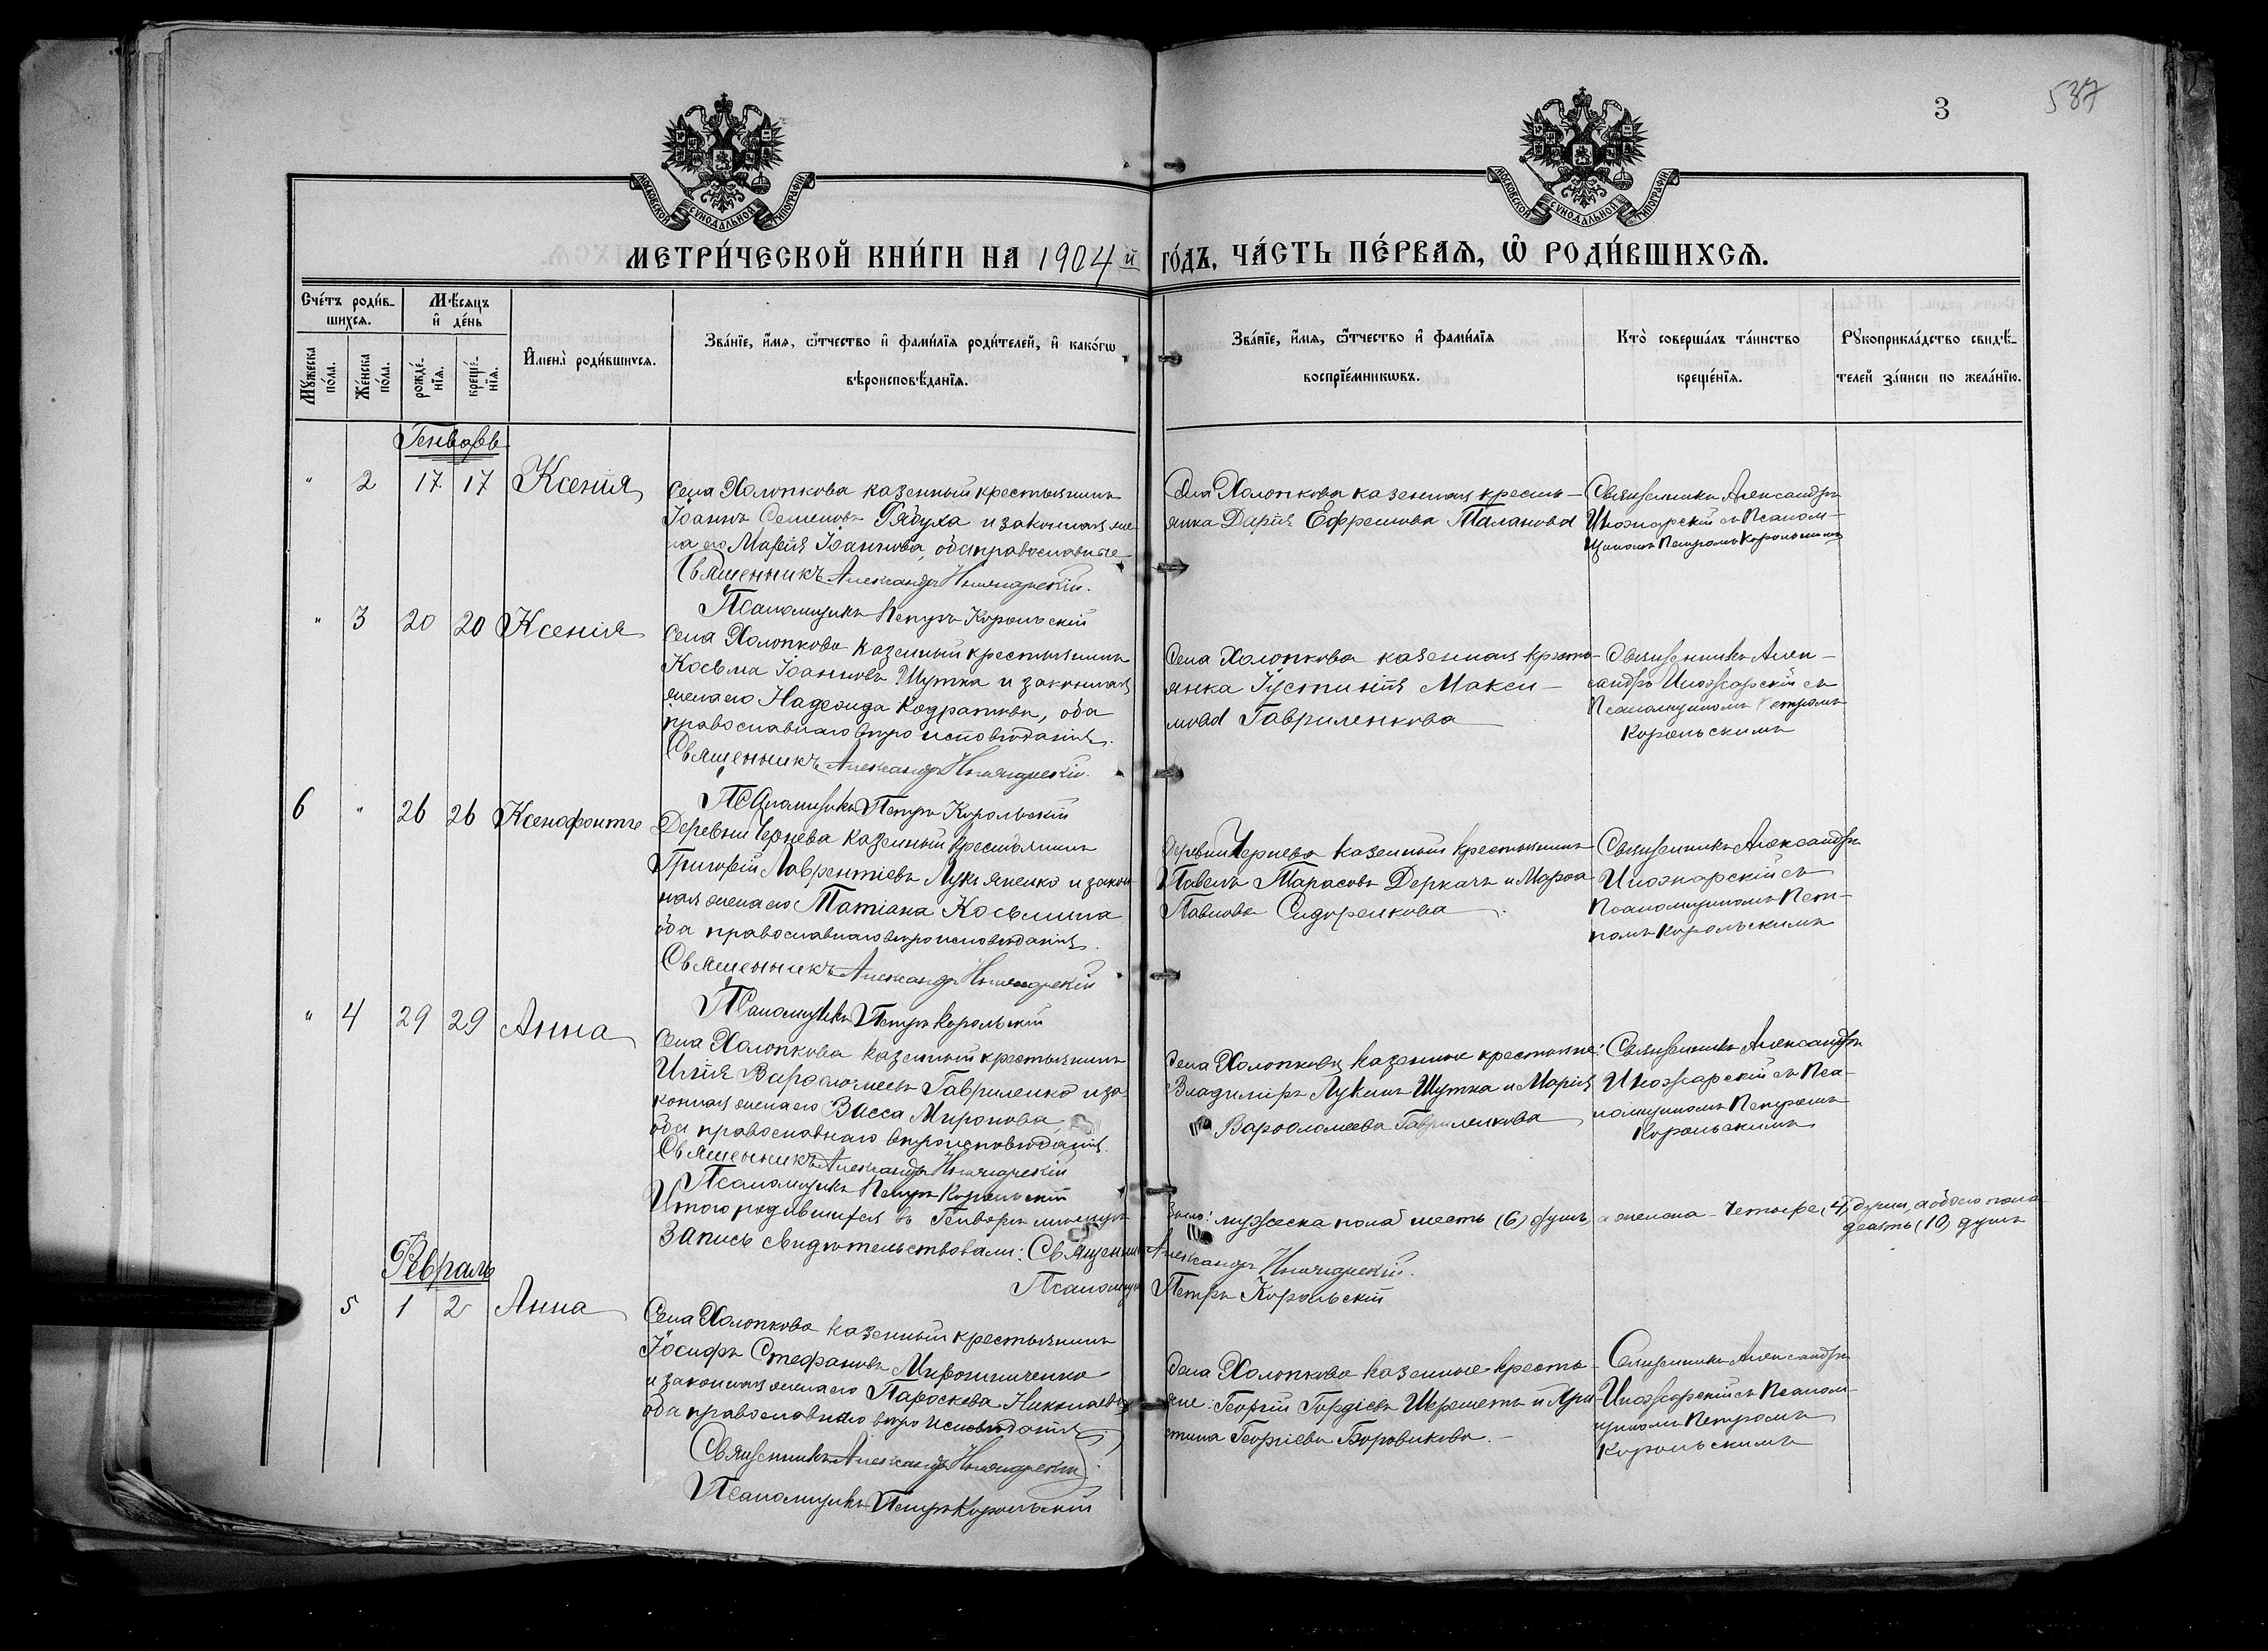 537
3
МОСКОВСКОЙ СѴНОДАЛЬНОЙ ТИПОГРАФІИ
МОСКОВСКОЙ СѴНОДАЛЬНОЙ ТИПОГРАФІИ
МЕТРИ́ЧЕСКОЙ КНИ́ГИ НА 1904 й ГО́ДЪ, ЧА́СТЬ ПЕ́РВАѦ, Ѽ РОДИ́ВШИХСѦ.
Сче́тъ роди́в-
шихсѧ.
Мꙋ́жеска по́ла.
Же́нска по́ла.
Мѣ́сѧцъ
и҆ де́нь
рожде́-
нїѧ.
креще́-
нїѧ.
И҆мена̀ роди́вшихсѧ.
Зва́нїе, и҆́мѧ, ѻ҆́тчество и҆ фами́лїѧ роди́телей, и҆ како́гѡ
вѣроисповѣ́данїѧ.
Зва́нїе, и҆́мѧ, ѻ҆́тчество и҆ фами́лїѧ
воспрїе́мникѡвъ.
Кто̀ соверша́лъ та́инство
креще́нїѧ.
Рꙋкоприкла́дство свидѣ́-
телей за́писи по жела́нїю.
Генварь
" 2 17 17 Ксенія
Села Холопкова казенный крестьянинъ
Іоаннъ Семеновъ Рябуха и законная же-
на его Марія Іоаннова, оба православные
Священникъ Александръ
Псаломщикъ Петръ Корольскій
Села Холопкова казенная кресть-
янка Дарія Ефремова Таланова
Священникъ Александръ
съ Псалом-
щикомъ Петромъ Корольскимъ
" 3 20 20 Ксенія
Села Холопкова казенный крестьянинъ
Косьма Іоанновъ Шутка и законная
жена его Надежда Кодратова, оба
православнаго вѣроисповѣданія.
Священникъ Александръ
Псаломщикъ Петръ Корольскій
Села Холопкова казенная кресть-
янка Іустинія Макси-
мова Гавриленкова
Священникъ Алек-
сандръ съ
Псаломщикомъ Петромъ
Корольскимъ
6 " 26 26 Ксенофонтъ
Деревни Чернева казенный крестьянинъ
Григорій Лаврентіевъ Лукьяненко и закон-
ная жена его Татіана Косьмина
оба православнаго вѣроисповѣданія.
Священникъ Александръ
Псаломщикъ Петръ Корольскій
Деревни Чернева казенный крестьянинъ
Павелъ Тарасовъ Деркачъ и Марѳа
Павлова Сидоренкова.
Священникъ Александръ
съ
Псаломщикомъ Пет-
ромъ Корольскимъ
" 4 29 29 Анна
Села Холопкова казенный крестьянинъ
Илія Варѳоломеевъ Гавриленко и за-
конная жена его Васса Миронова,
оба православнаго вѣроисповѣданія.
Священникъ Александръ
Псаломщикъ Петръ Корольскій
Села Холопкова казенные крестьяне:
Владиміръ Лукинъ Шутка и Марія
Варѳоломеева Гавриленкова
Священникъ Александръ
съ Пса-
ломщикомъ Петромъ
Корольскимъ
Итого родившихся въ Генварѣ мѣсяцѣ было: мужеска пола шесть (6) душъ, а женска - четыре (4) души, а обоего пола
десять (10) душъ
Запись свидѣтельствовали: Священникъ Александръ
Псаломщикъ Петръ Корольскій
Февраль
5 1 2 Анна
Села Холопкова казенный крестьянинъ
Іосифъ Стефановъ Мирошниченко
и законная жена его Параскева Николаева
оба православнаго вѣроисповѣданія.
Священникъ Александръ
Псаломщикъ Петръ Корольскій
Села Холопкова казенные кресть-
яне: Георгій Гордіевъ Шереметъ и Хри-
стина Георгіева Боровикова.
Священникъ Александръ
съ Псалом-
щикомъ Петромъ
Корольскимъ